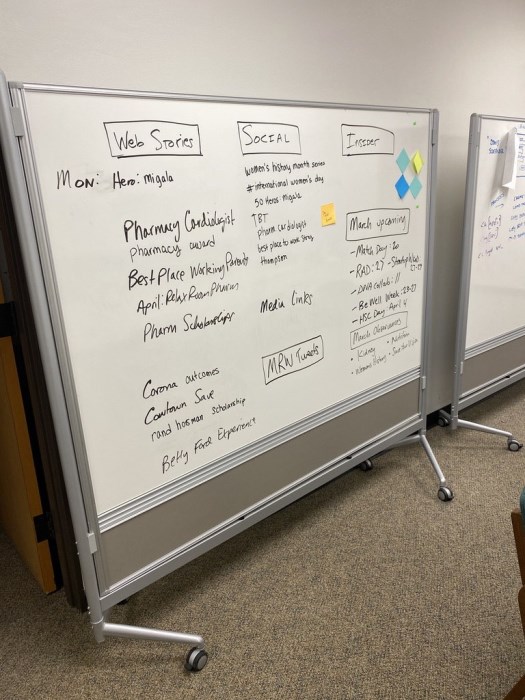 Web Stories
Mon: Hero: migala
Pharmacy Cardiologist
pharmacy award
Best Place Working Parents
April: Relay Room Pharm
Pharm Scholarships
Corona outcomes
Cowtown Save
rand horsman scholarship
Betty Ford Experience
Social
women's history month series
#international women's day
50 Heros Migala
TBT
pharm cardiologist
best place to work story
thompson
Media Links
MRW Tweets
Insider
March upcoming
- Match Day: 20
- RAD: 27
- DNA collab: 11
- Be Well Week: 23-27
- HSC Day April 4
March Observances
• Kidney
• Nutrition
• Womens History